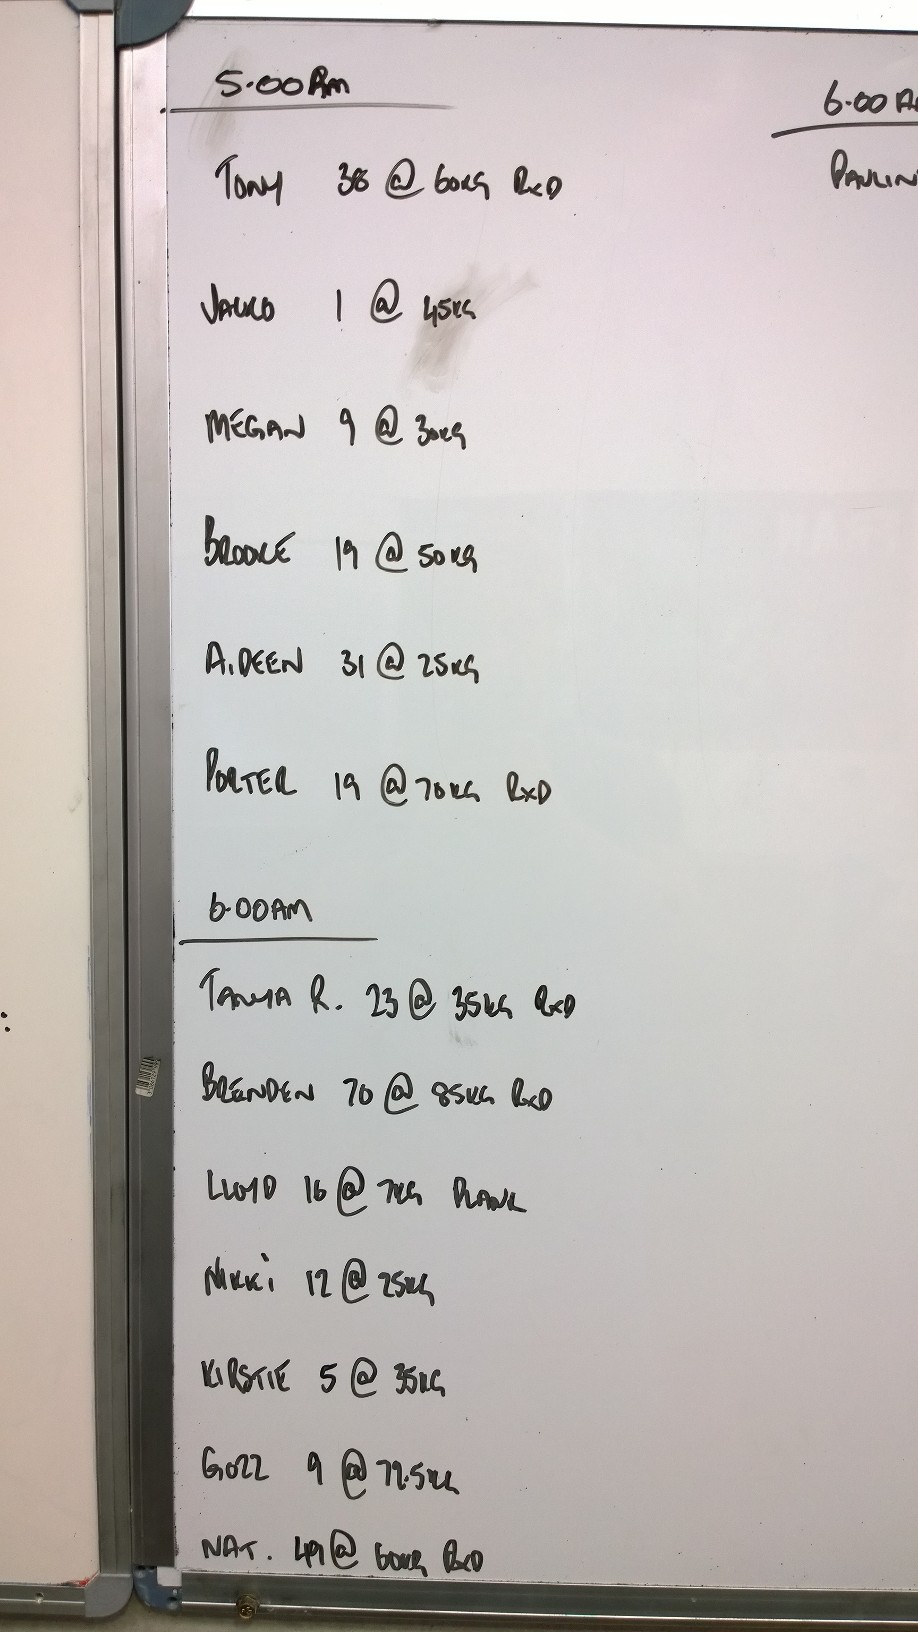 5.00AM
TONY 38 @ 60KG RxD
1 @ 45KG
MEGAN 9 @ 30KG
BROOKE 19 @ 50KG
AIDEEN 31 @ 25KG
PORTER 19 @ 70KG RxD
6.00AM
TANYA R. 23 @ 35KG RxD
BRENDEN 70 @ 85KG RxD
LLOYD 16 @ 7KG PLANK
NIKKi 12 @ 25KG
KIRSTIE 5 @ 35KG
GOZZ 9 @
NAT. 49 @ 60KG RxD
6.00 A
PAULIN